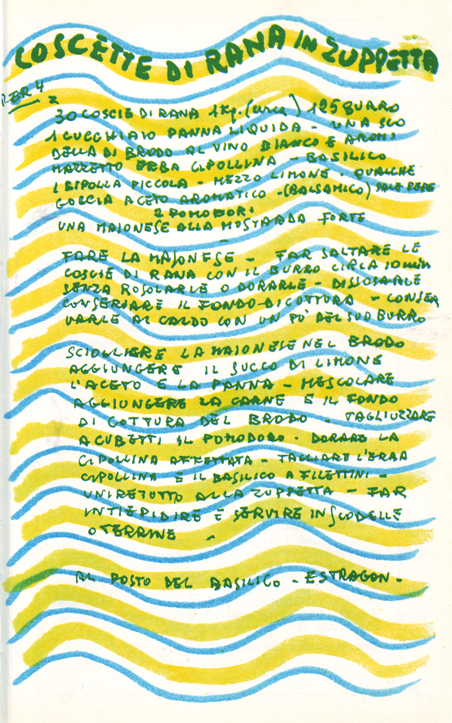 COSCETTE DI RANA IN ZUPPETTA
PER 4
30 COSCIE DI RANA 1 Kg. (circa) 125 BURRO
1 CUCCHIAIO PANNA LIQUIDA - UNA SCO
DELLA DI BRODO AL VINO BIANCO E AROMI
MAZZETTO ERBA CIPOLLINA - BASILICO
1 CIPOLLA PICCOLA - MEZZO LIMONE - QUALCHE
GOCCIA ACETO AROMATICO - (BALSAMICO) SALE PEPE
2 POMODORI
UNA MAIONESE ALLA MOSTARDA FORTE
-
FARE LA MAIONESE - FAR SALTARE LE
COSCIE DI RANA CON IL BURRO CIRCA 10 min
SENZA ROSOLARLE O DORARLE - DISSOSARLE
CONSERVARE IL FONDO DI COTTURA - CONSER
VARLE AL CALDO CON UN PO' DEL SUO BURRO
SCIOGLIERE LA MAIONESE NEL BRODO
AGGIUNGERE IL SUCCO DI LIMONE
L'ACETO E LA PANNA - MESCOLARE
AGGIUNGERE LA CARNE E IL FONDO
DI COTTURA DEL BRODO - TAGLIUZZARE
A CUBETTI IL POMODORO - DORARE LA
CIPOLLINA AFFETTATA - TAGLIARE L'ERBA
CIPOLLINA E IL BASILICO A FILETTINI -
UNIRE TUTTO ALLA ZUPPETTA - FAR
INTIEPIDIRE E SERVIRE IN SCODELLE
O TERRINE -
AL POSTO DEL BASILICO - ESTRAGON -